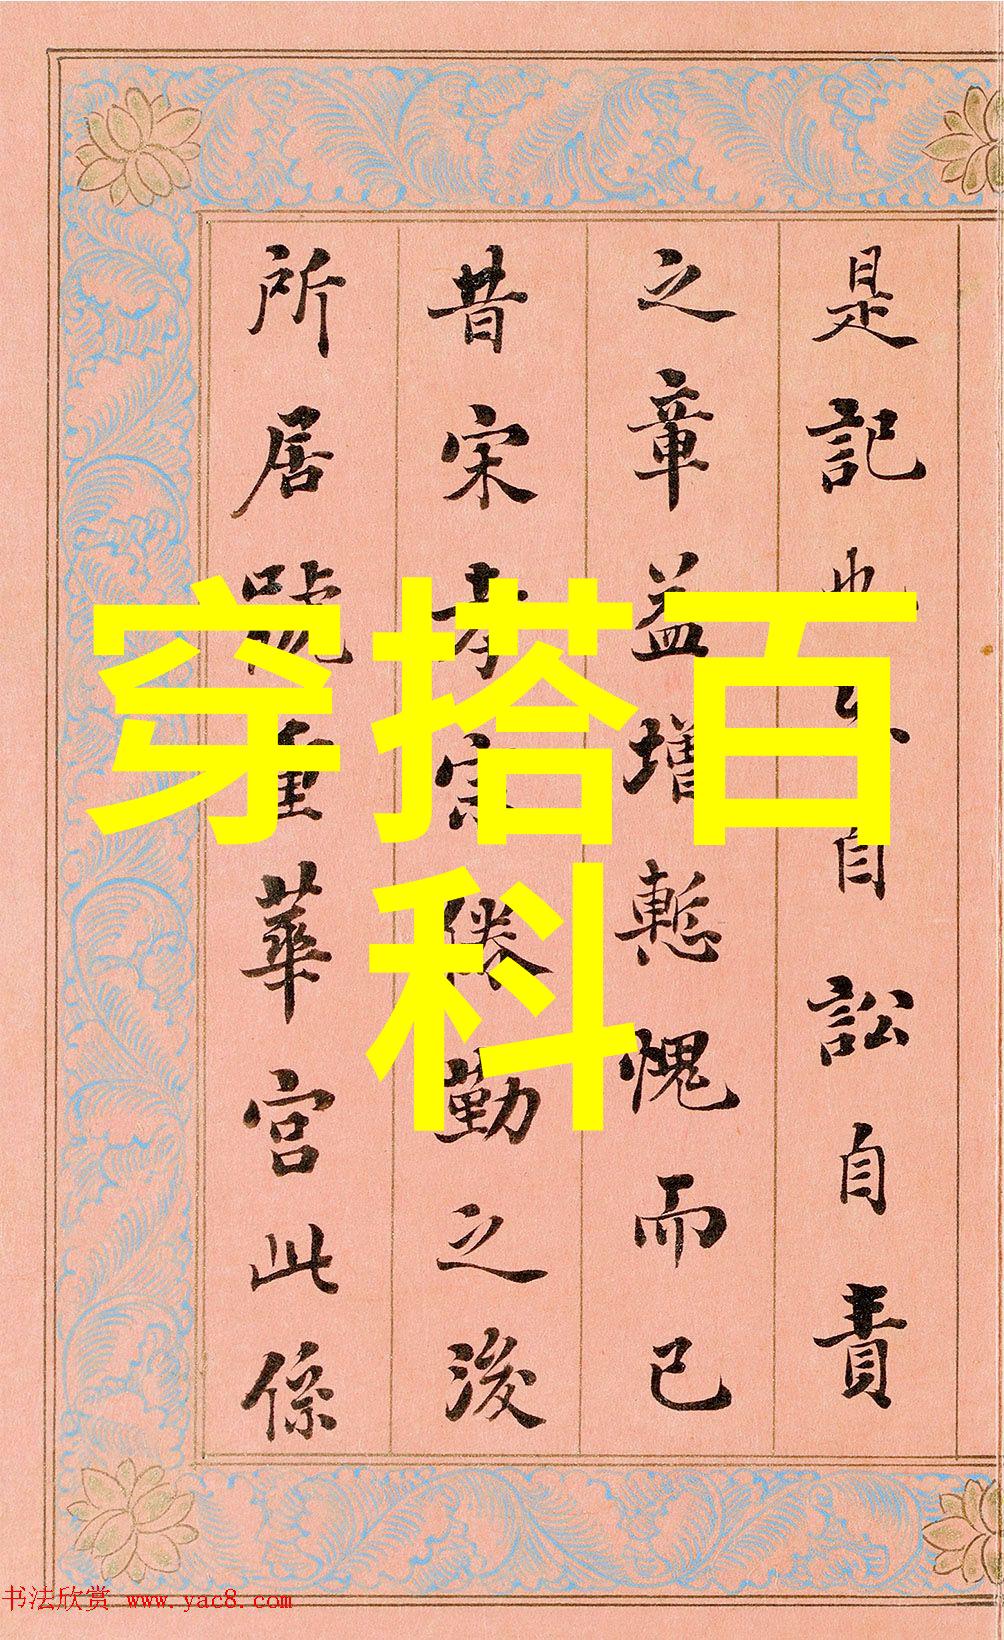 是記自訟自責
之章益增慙愧而已
昔宋孝宗倦勤之後
所居號重華宮此係
穿搭百
科
书法欣赏 www.yac8.com